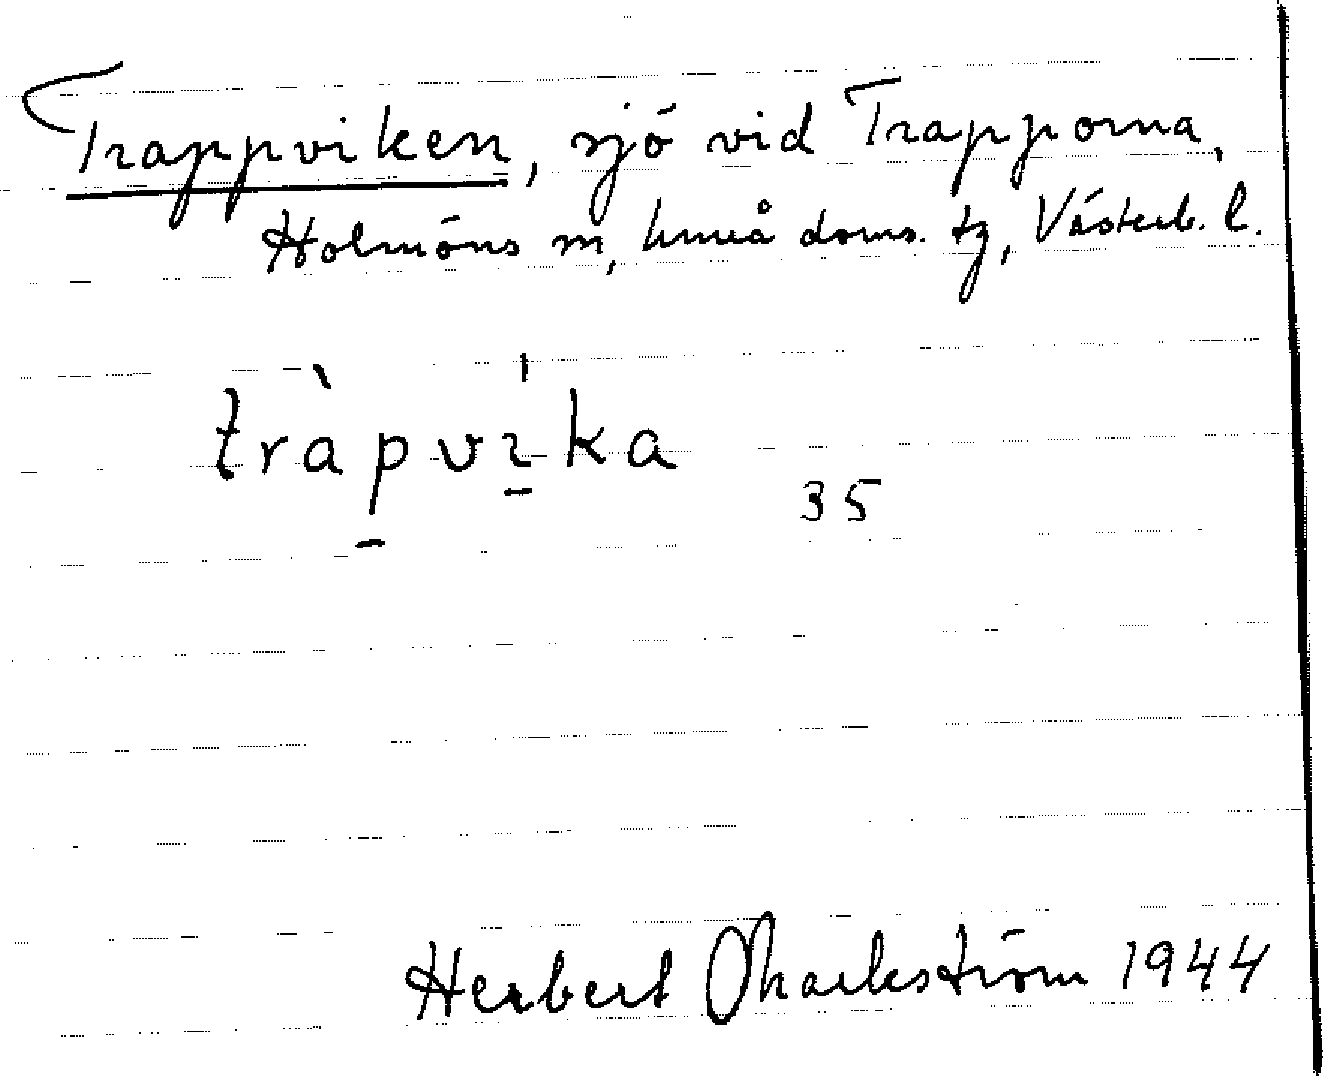 Trappviken, sjö vid Trapporna,
Holmöns sn, Umeå doms. tg, Västerb. l.
tràpvı̍ka
35
Herbert Markström 1944